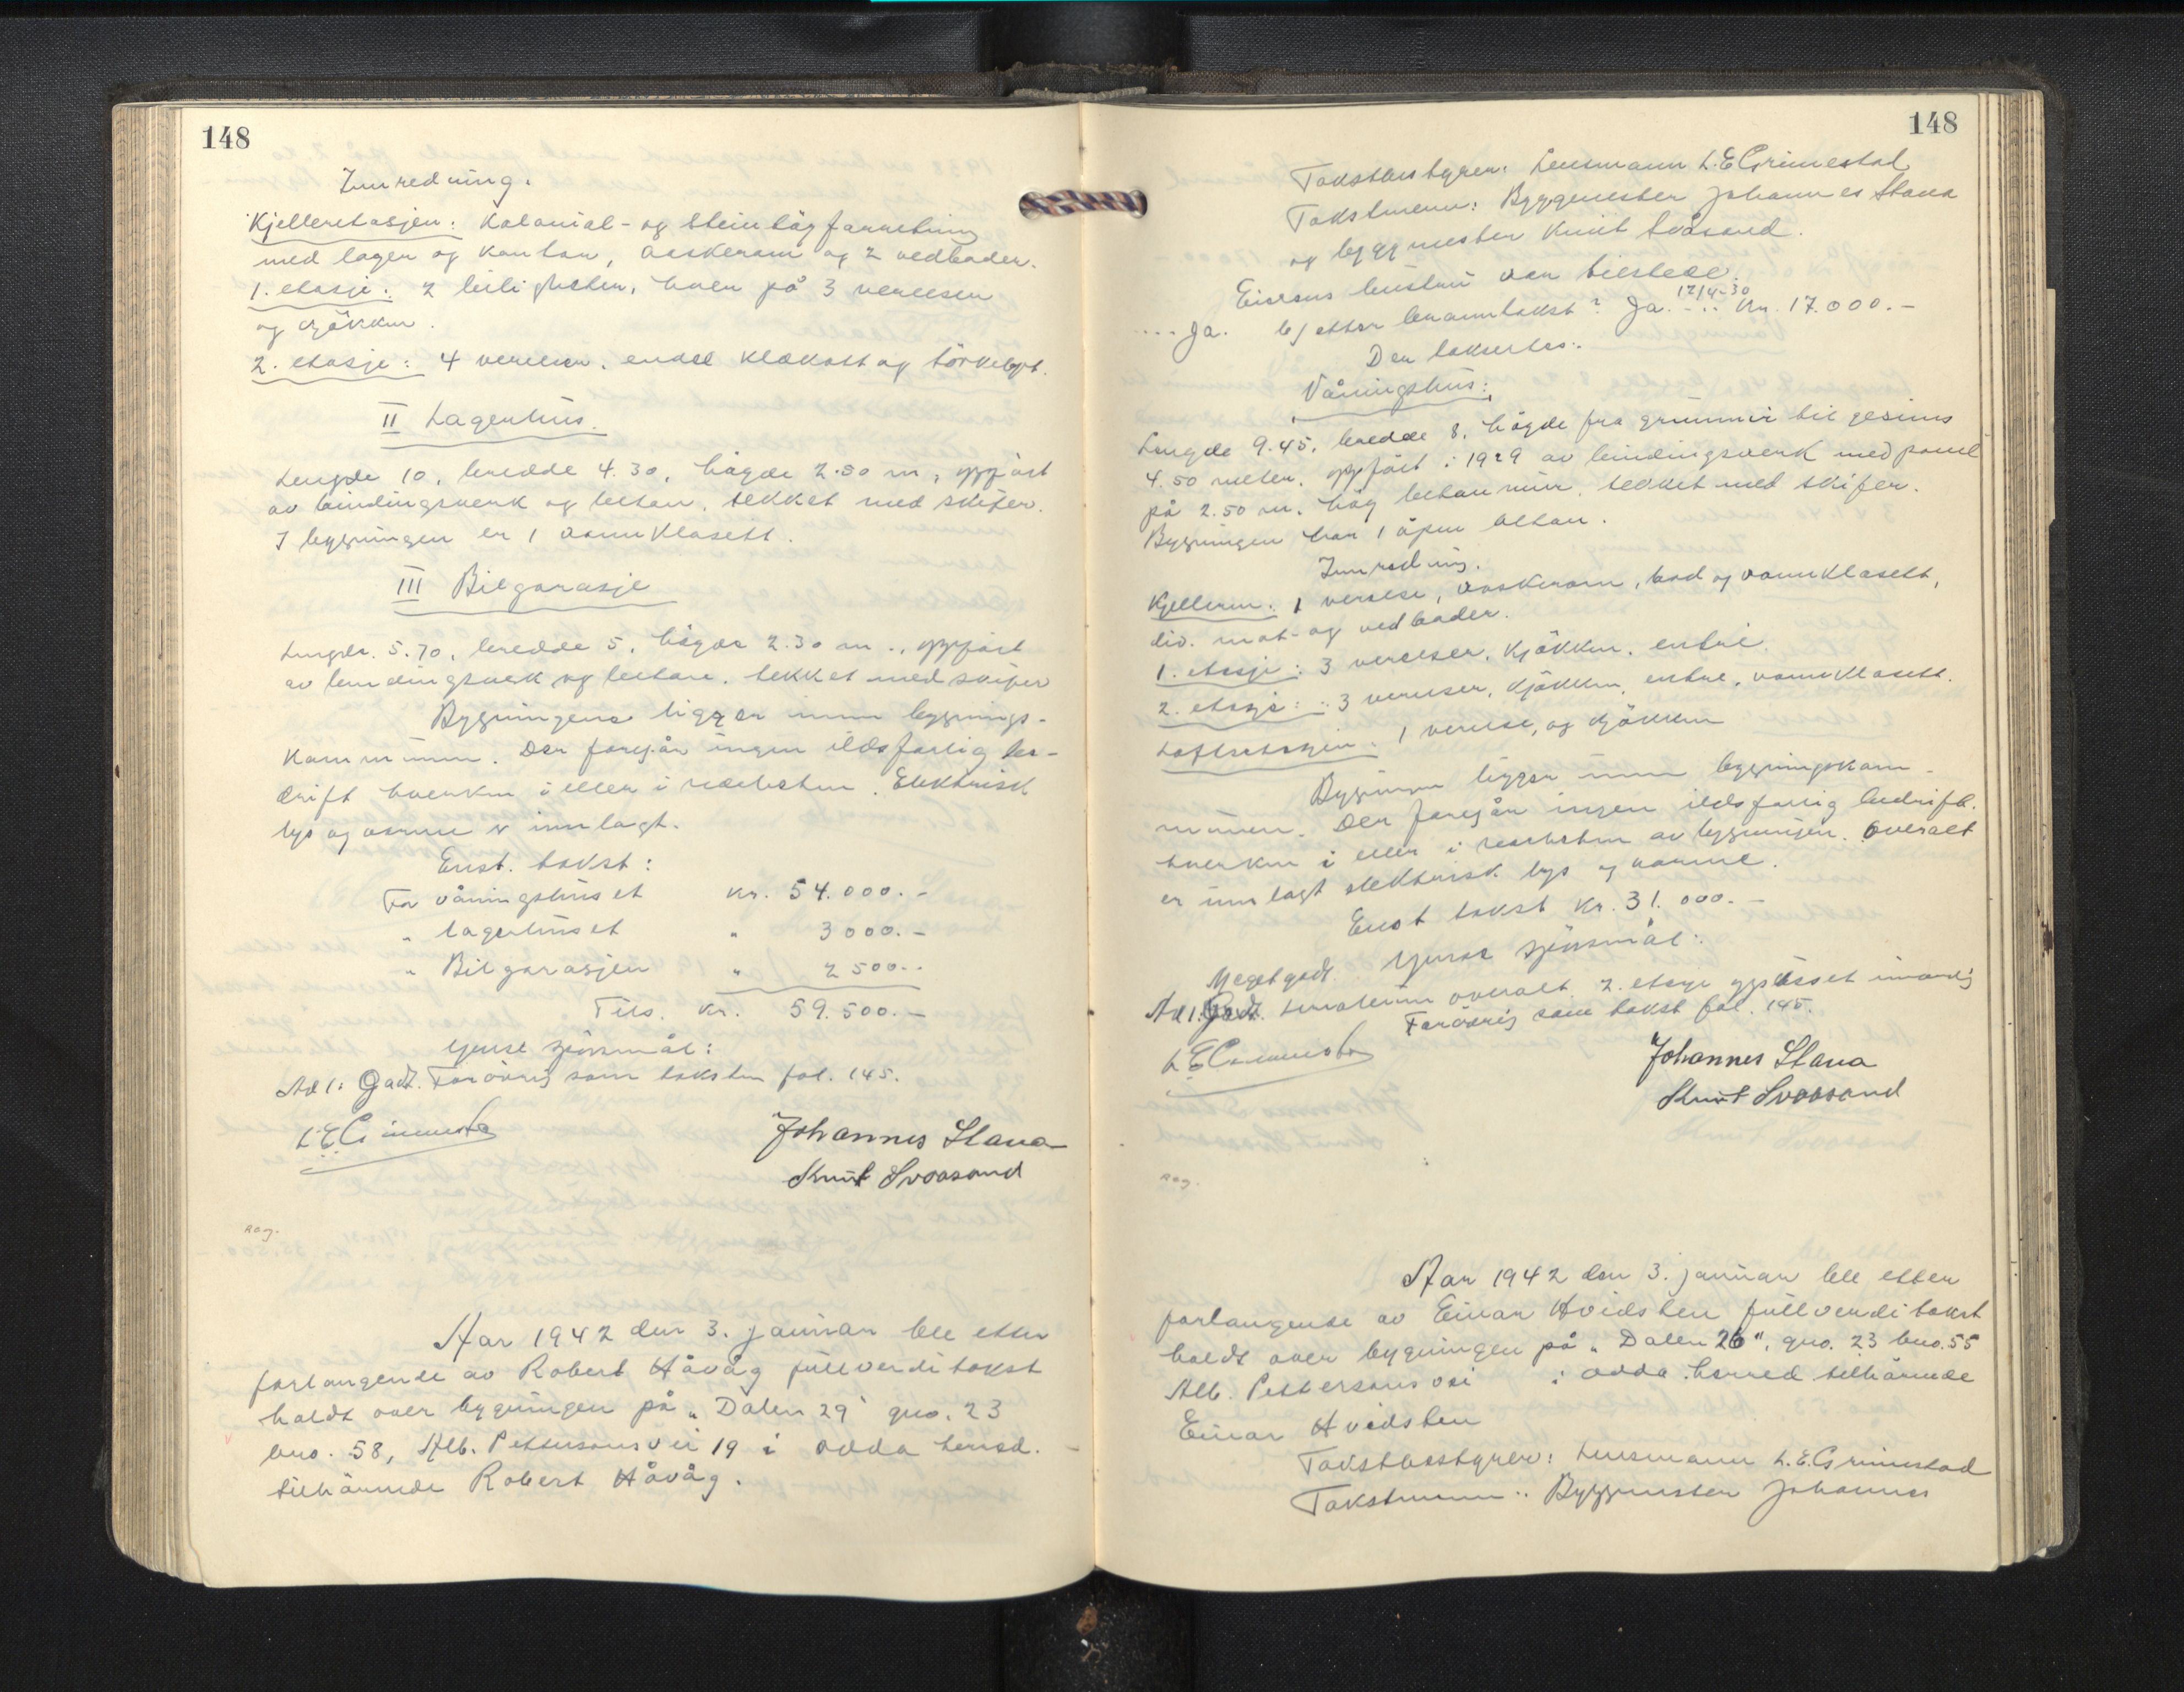 148
Innredning.
Kjelleretasjen: Kolonial- og steintøyforretning
med lager og kontor, vaskerom og 2 vedboder.
1. etasje: 2 leiligheter, hver på 3 verelser
og kjökken.
2. etasje: 4 verelser, endel klækott og törkeloft.
II Lagerhus.
Lengde 10, bredde 4.30, högde 2.50 m, oppfört
av bindingsverk og beton, tekket med skifer.
I bygningen er 1 vannklosett.
III Bilgarasje
Lengde 5.70, bredde 5, högde 2.30 m., oppfört
av bindingsverk og betong, tekket med skifer
Bygningene ligger innen bygnings-
kommunen. Der foregår ingen ildsfarlig be-
drift hverken i eller i nærheten. Elektrisk
lys og varme er innlagt.
Enst. takst:
For våningshuset kr. 54.000.-
" lagerhuset " 3000.-
" Bilgarasjen " 2500.-
Tils. kr. 59.500.-
Ymse spörsmål:
Ad 1: Godt. Forövrig som taksten fol. 145.
L.E. Grimestad
Johannes Stana
Knut Svoasand
Reg.
Aar 1942 den 3. januar ble etter
forlangende av Robert Håvåg fullverditakst
holdt over bygningen på "Dalen 29" gno. 23
bno. 58, Alb. Pettersons vei 19 i Odda herred.
tilhörende Robert Håvåg.
148
Takstbestyrer: Lensmann L.E. Grimestad
Takstmenn: Byggmester Johannes Stana
og byggmester Knut Svåsand.
Eierens hustru var tilstede.
.... Ja. b) etter branntakst? Ja. 12/4-30 Kr. 17.000.-
Der taksertes:
Våningshus:
Lengde 9.45, bredde 8, högde fra grunnmur til gesims
4.50 meter, oppfört i 1929 av bindingsverk med panel
på 2.50 m. höy betonmur, tekket med skifer.
Bygningen har 1 åpen altan.
Innredning.
Kjelleren: 1 verelse, vaskerom, bad og vannklosett,
div. mat- og vedboder.
1. etasje: 3 verelser, kjökken, entré.
2. etasje: 3 verelser, kjökken, entre, vannklosett.
Loftsetasjen: 1 verelse, og kjökken
Bygningen ligger innen bygningskom-
munen. Der foregår ingen ildsfarlig bedrift
hverken i eller i nærheten av bygningen. Overalt
er innlagt elektrisk lys og varme.
Enst takst kr. 31.000.-
Ymse spörsmål:
Meget godt.
Ad 1: Godt. Linoleum overalt. 2. etasje opplåsset innvendig
Forövrig som takst fol. 145.
L.E. Grimestad
Johannes Stana
Knut Svoasand
Reg.
Aar 1942 den 3. januar ble etter
forlangende av Einar Hvidsten fullverditakst
holdt over bygningen på "Dalen 26", gno. 23 bno. 55
Alb. Pettersons vei i Odda herred tilhörende
Einar Hvidsten
Takstbestyrer: Lensmann L.E. Grimestad
Takstmenn: Byggmester Johannes